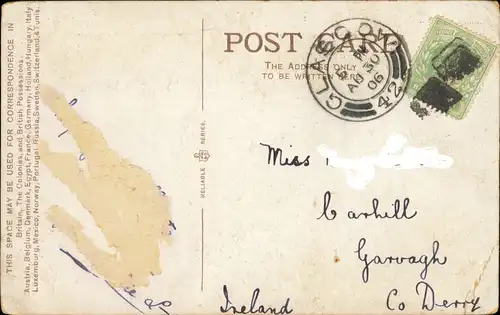 THIS SPACE MAY BE USED FOR CORRESPONDENCE IN
Britain, The Colonies, and British Possessions,
Austria, Belgium, Denmark, Egypt, France, Germany, Holland, Hungary, Italy
Luxemburg, Mexico, Norway, Portugal, Russia, Sweden, Switzerland, & Tunis.
POST CARD
THE ADDRESS ONLY
TO BE WRITTEN HERE
GLASGOW
PM
AU 30
06
42
RELIABLE SERIES.
Miss
Carhill
Garvagh
Ireland Co Derry